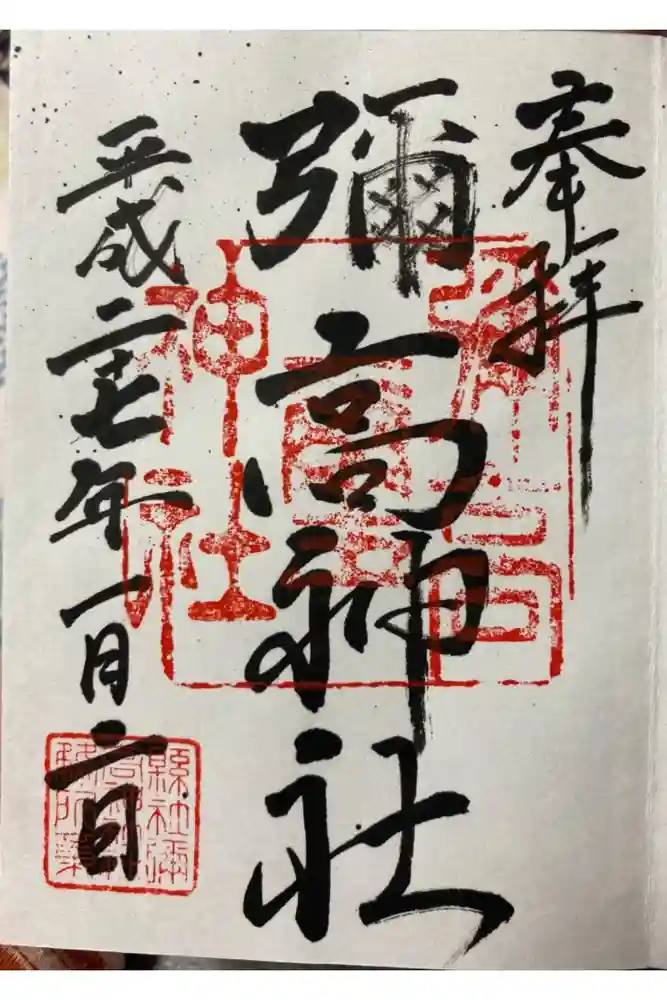 奉拝
彌高神社
平成二十七年一月二日
彌高
神社
縣社彌
高神社